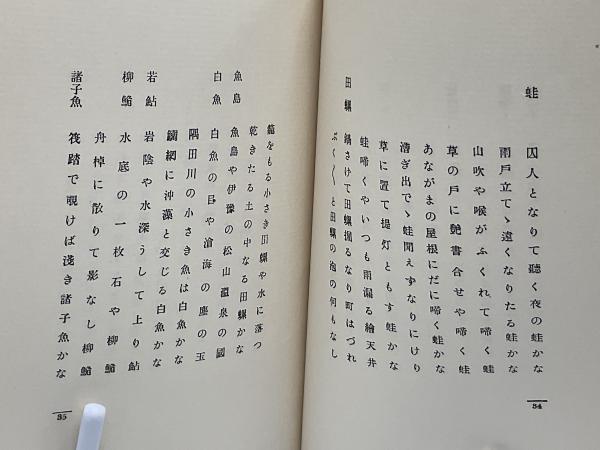 蛙
囚人となりて聽く夜の蛙かな
雨戶立てゝ遠くなりたる蛙かな
山吹や喉がふくれて啼く蛙
草の戶に艶書合せや啼く蛙
あながまの屋根にだに啼く蛙かな
漕ぎ出でゝ蛙聞えずなりにけり
草に置て提灯ともす蛙かな
蛙啼くやいつも雨漏る繪天井
田螺 鍋さけて田螺掘るなり町はづれ
ぶく〳〵と田螺の泡の何もなし
34
籠をもる小さき田螺や水に落つ
乾きたる土の中なる田螺かな
魚島 魚島や伊豫の松山溫泉の國
白魚 白魚の目や滄海の塵の玉
隅田川の小さき魚は白魚かな
網に沖藻と交じる白魚かな
若鮎 岩陰や水深うして上り鮎
柳鮠 水底の一枚石や柳鮠
舟棹に散りて影なし柳鮠
諸子魚 筏踏で覗けば淺き諸子魚かな
35